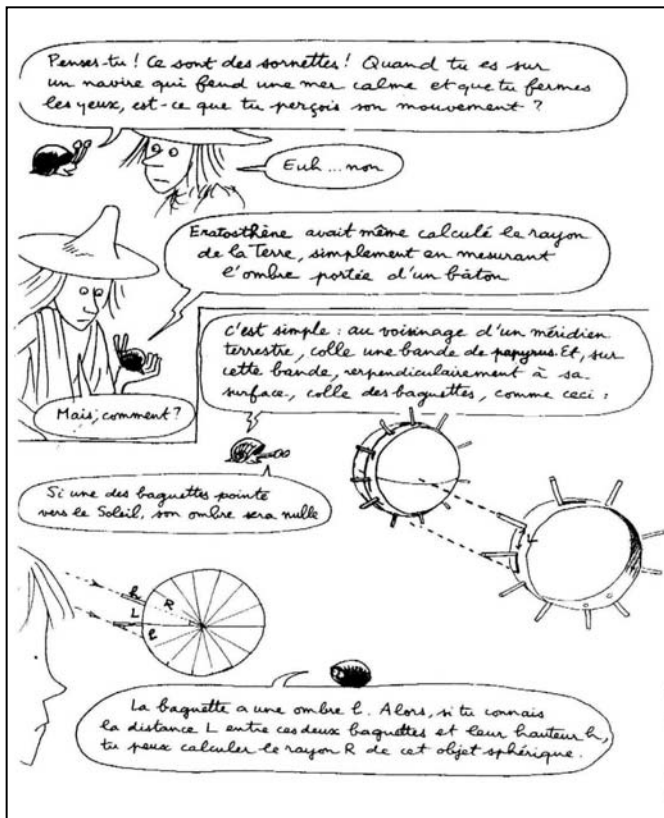 Penses-tu ! Ce sont des sornettes ! Quand tu es sur
un navire qui fend une mer calme et que tu fermes
les yeux, est-ce que tu perçois son mouvement ?
Euh ... non
Eratosthène avait même calculé le rayon
de la Terre, simplement en mesurant
l'ombre portée d'un bâton
Mais, comment ?
c'est simple : au voisinage d'un méridien
terrestre, colle une bande de papyrus. Et, sur
cette bande, perpendiculairement à sa
surface, colle des baguettes, comme ceci :
Si une des baguettes pointe
vers le Soleil, son ombre sera nulle
L
h
R
L
l
La baguette a une ombre l. Alors, si tu connais
la distance L entre ces deux baguettes et leur hauteur h,
tu peux calculer le rayon R de cet objet sphérique.